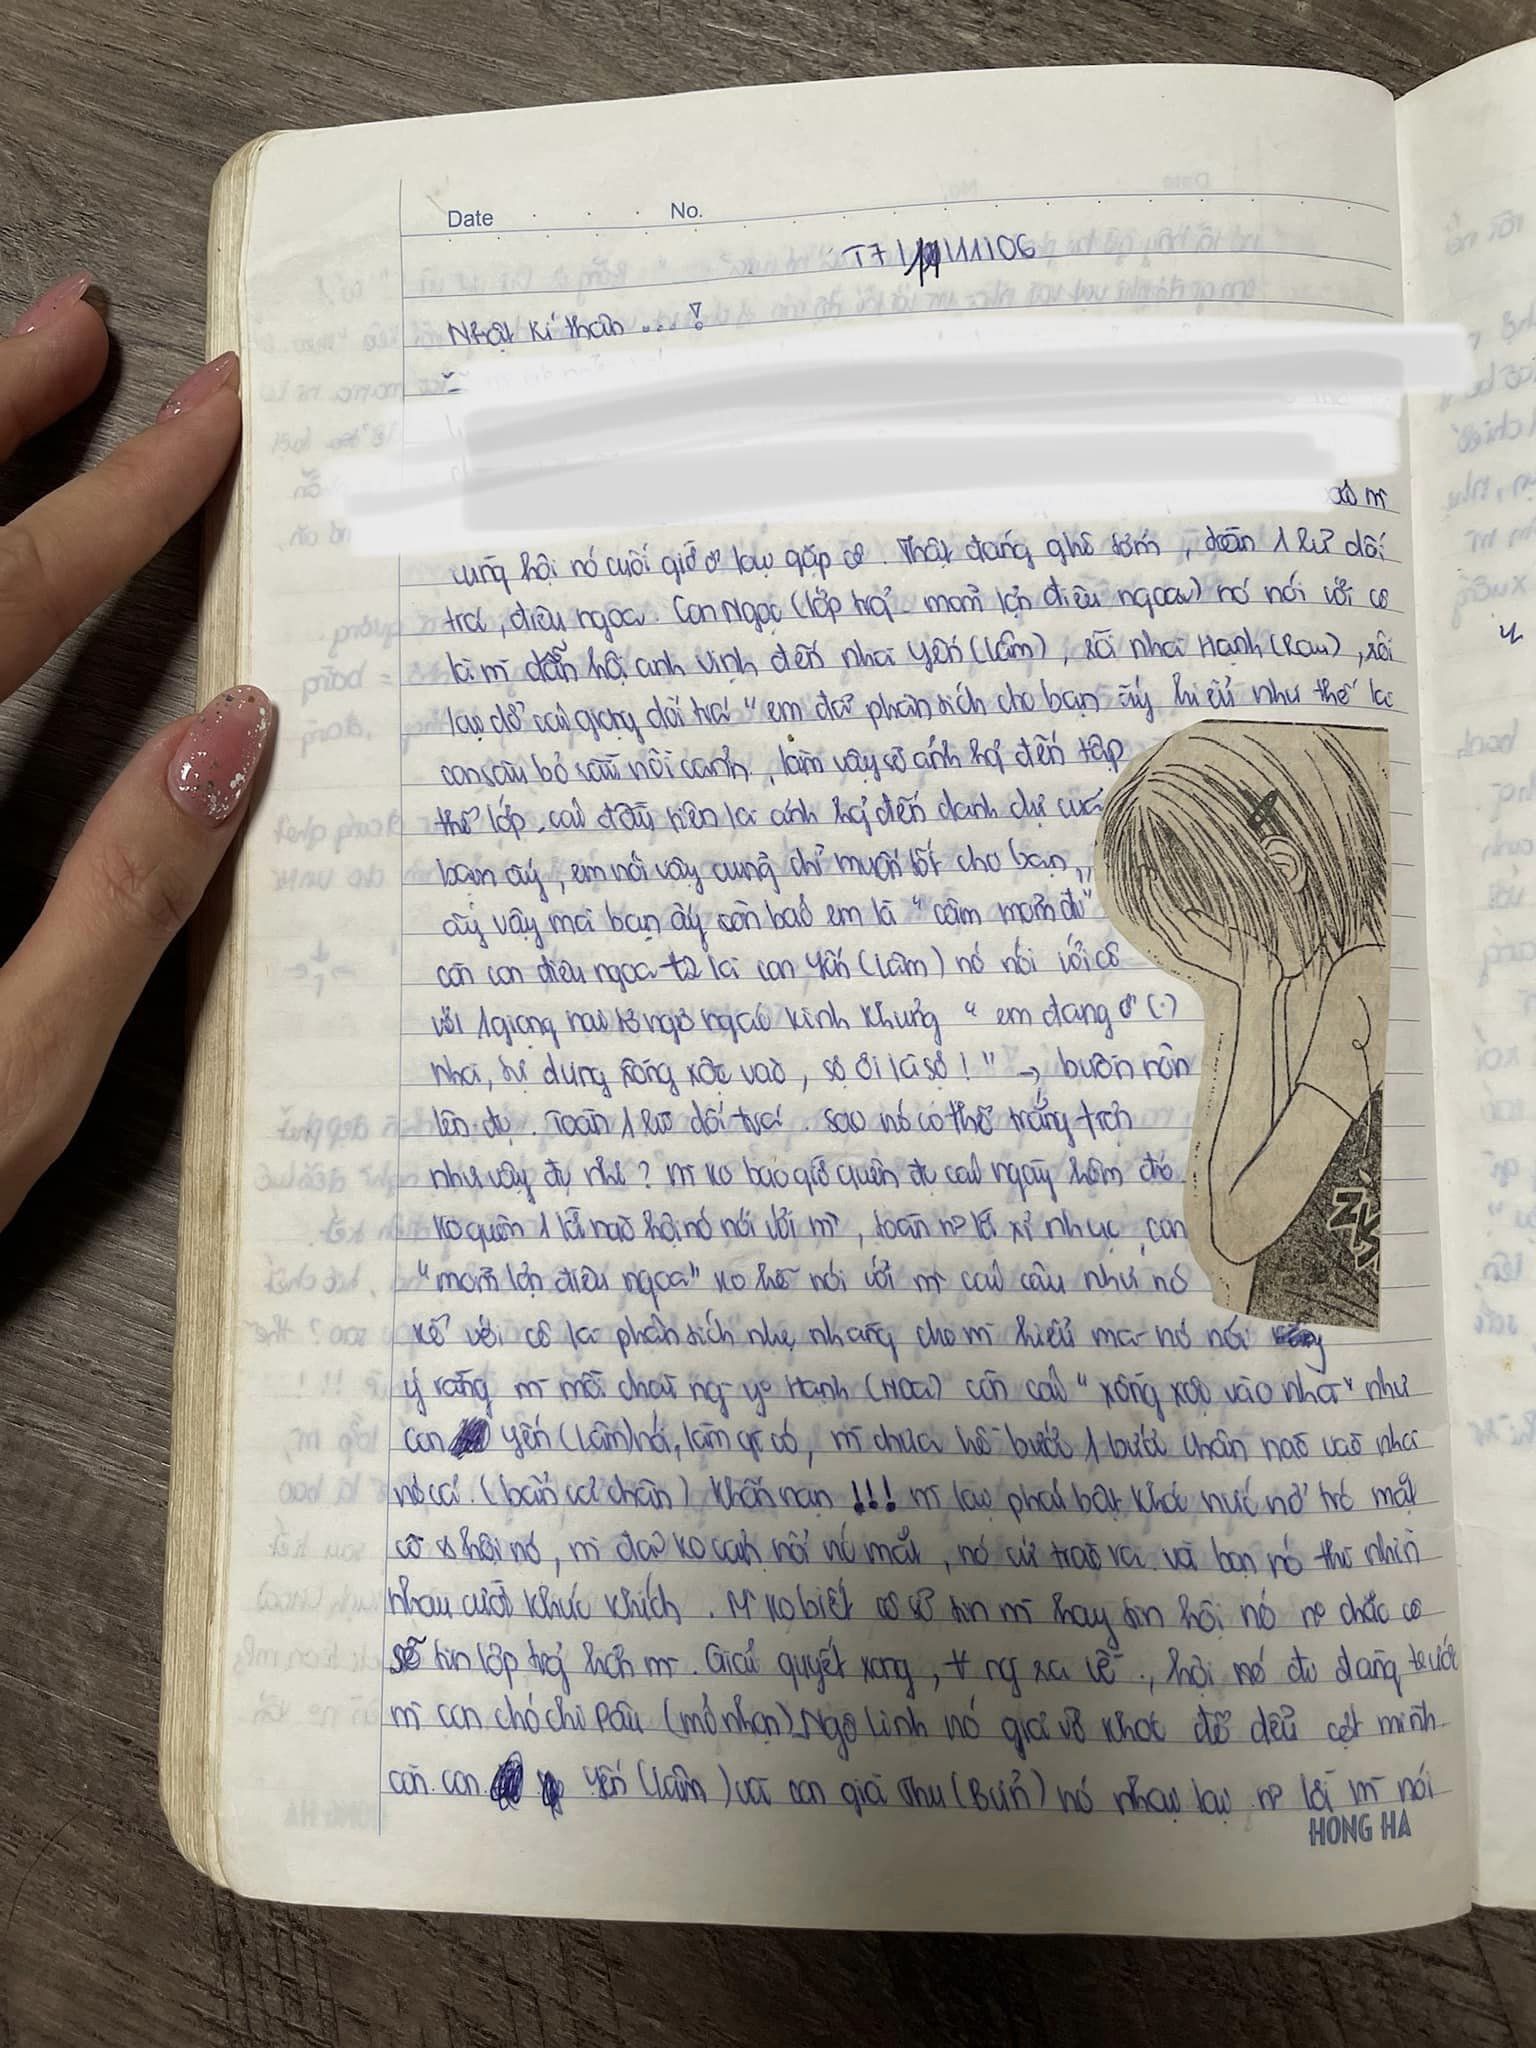 Date No.
T7 11/11/06
Nhật kí thân ... !
cùng hội nó cuối giờ ở lại gặp cô. Thật đáng ghê tởm, toàn 1 lũ dối
trá, điêu ngoa. Con Ngọc (lớp trg. mồm lợn điêu ngoa) nó nói với cô
là m dẫn hội anh Vinh đến nhà Yến (Lâm), rồi nhà Hạnh (), rồi
lại dở cái giọng dối trá "em đã phân tích cho bạn ấy hiểu như thế là
con sâu bỏ rầu nồi canh, làm vậy sẽ ảnh hg đến tập
thể lớp, cái đầu tiên là ảnh hg đến danh dự của
bạn ấy, em nói vậy cũng chỉ muốn tốt cho bạn
ấy vậy mà bạn ấy còn bảo em là "câm mồm đi"
còn con điêu ngoa t2 là con Yến (Lâm) nó nói với cô
với 1 giọng nai tơ ngơ ngác kinh khủng "em đang ở (.)
nhà, tự dưng xồng xộc vào, sợ ơi là sợ!" → buồn nôn
lên đc. Toàn 1 lũ dối trá. Sao nó có thể trắng trợn
như vậy đc nhỉ? M ko bao giờ quên đc cái ngày hôm đó
ko quên 1 lời nào hội nó nói với m, toàn n~ lời xỉ nhục, con
"mồm lợn điêu ngoa" ko hề nói với m cái câu như nó
kể với cô là phân tích nhẹ nhàng cho m hiểu mà nó nói
ý rằng m mồi chài ng y~ Hạnh (Hoa) còn cái "xồng xộc vào nhà" như
con Yến (Lâm) nói, làm gì có, m chưa hề bước 1 bước chân nào vào nhà
nó cả. (bẩn cả chân) khốn nạn !!! m lại phải bật khóc nức nở trc mặt
cô & hội nó, m đã ko cầm nổi nc mắt, nó cứ trào ra và bọn nó thì nhìn
nhau cười khúc khích. M ko biết cô sẽ tin m hay tin hội nó n~ chắc cô
sẽ tin lớp trg hơn m. Giải quyết xong, ng ra về, hội nó đi đằng trước
m con chó chi Pâu (mỏ nhọn) Ngô Linh nó giả vờ khóc để đểu cợt mình
còn con Yến (Lâm) và con già Thu (Bún) nó nhại lại n~ lời m nói
HONG HA